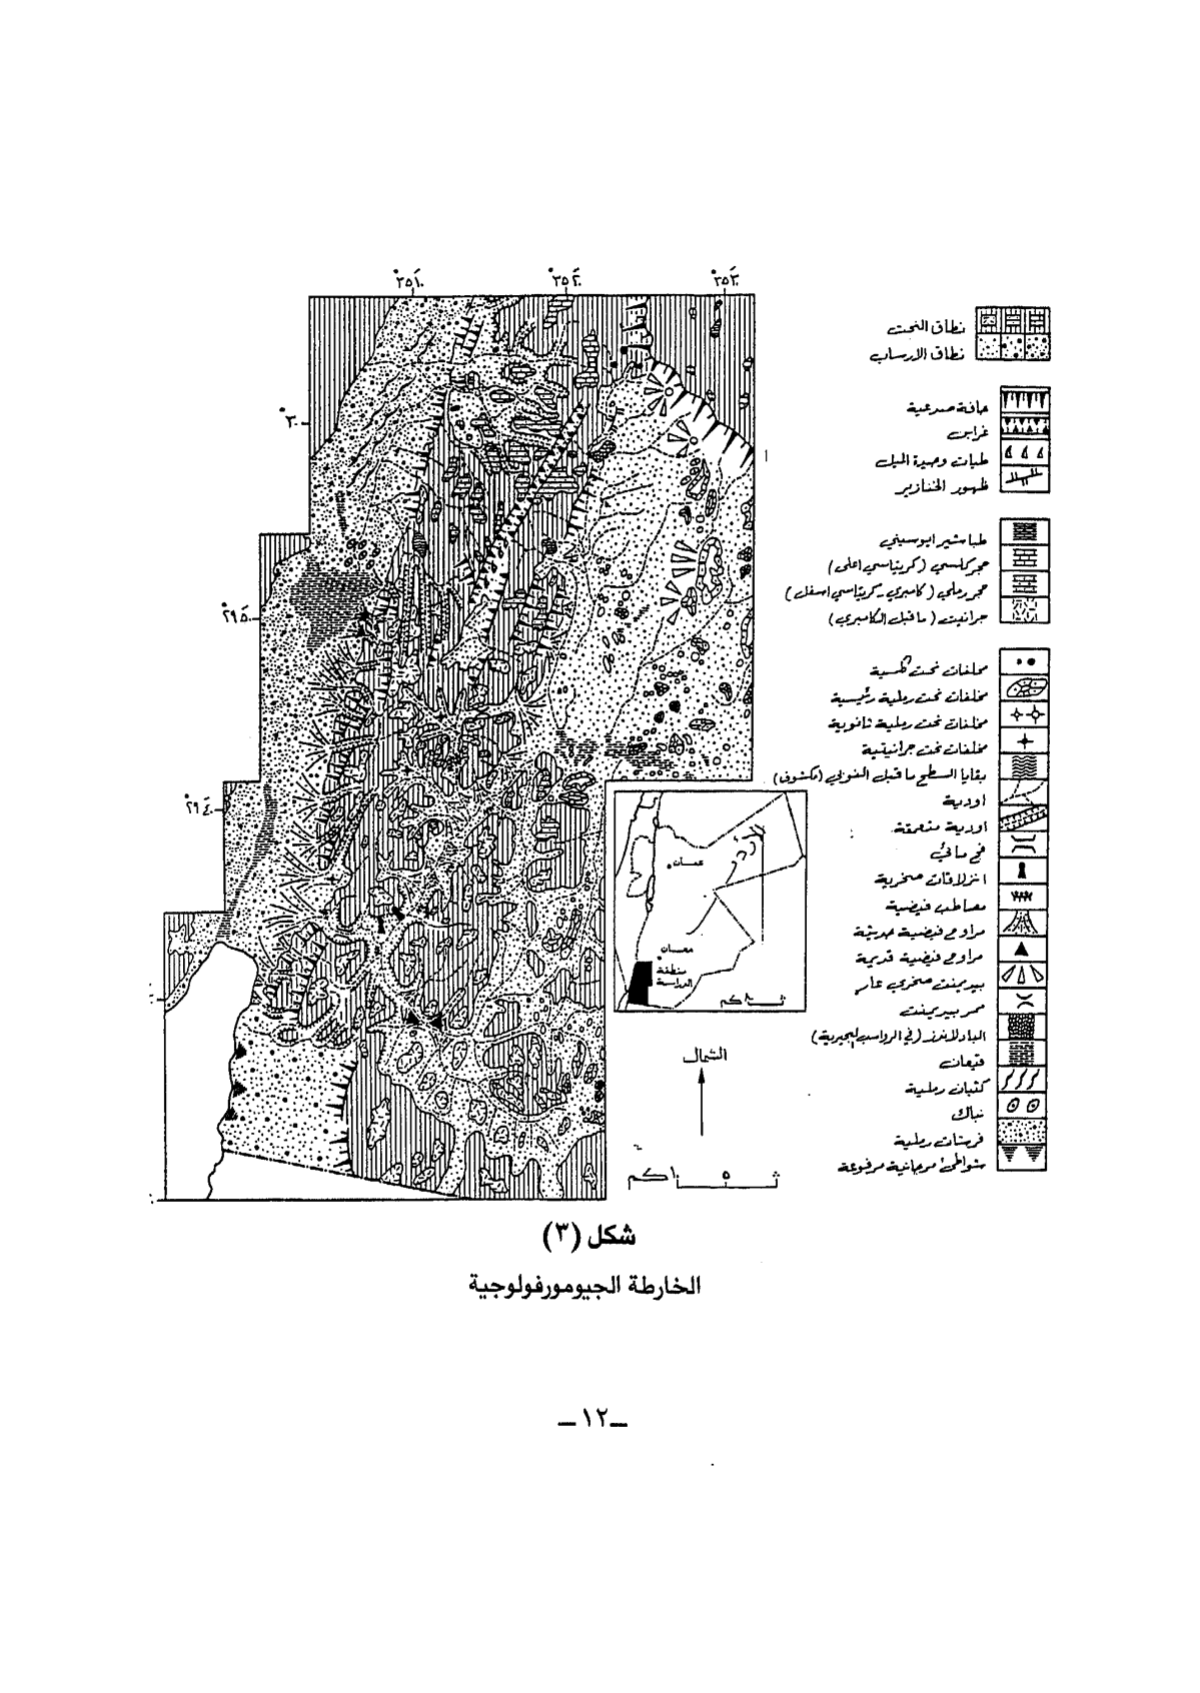 نطاق النحت
نطاق الارساب
حافة صدعية
غرابن
طيات وحيدة الميل
ظهور الخنازير
طباشير ايوسيني
حجر كلسي (كريتاسي اعلى)
حجر رملي (كامبري - كريتاسي اسفل)
جرانيت (ماقبل الكامبري)
مخلفات نحت كلسية
مخلفات نحت رملية رئيسية
مخلفات نحت رملية ثانوية
مخلفات نحت جرانيتية
بقايا السطح ماقبل النوبي (مكشوف)
اودية
اودية متعمقة
فج مائي
انزلاقات صخرية
مصاطب فيضية
مراوح فيضية حديثة
مراوح فيضية قديمة
بيديمنت صخري عار
ممر بيديمنت
البادلاندز (في الرواسب البحيرية)
قيعان
كثبان رملية
نباك
فرشات رملية
شواطئ مرجانية مرفوعة
الأردن
عمان
معان
منطقة
الدراسة
٨٠ كم
الشمال
١٠ كم
٥
شكل (٣)
الخارطة الجيومورفولوجية
ــ ١٢ ــ